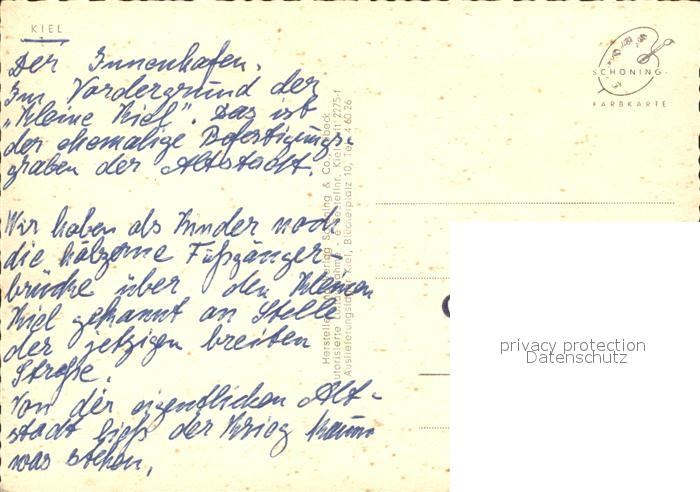 KIEL
Der Innenhafen.
Im Vordergrund der
„Kleine Kiel". Das ist
der ehemalige Befestigungs-
graben der Altstadt.
Wir haben als Kinder noch
die hölzerne Fußgänger-
brücke über den Kleinen
Kiel gekannt an Stelle
der jetzigen breiten
Straße.
Von der eigentlichen Alt-
stadt ließ der Krieg kaum
was stehen.
Hersteller: Verlag Schöning & Co., Lübeck
Auslieferungslager: Kiel, Blücherplatz 10, Tel. 4 60 26
SCHÖNING
FARBKARTE
privacy protection
Datenschutz